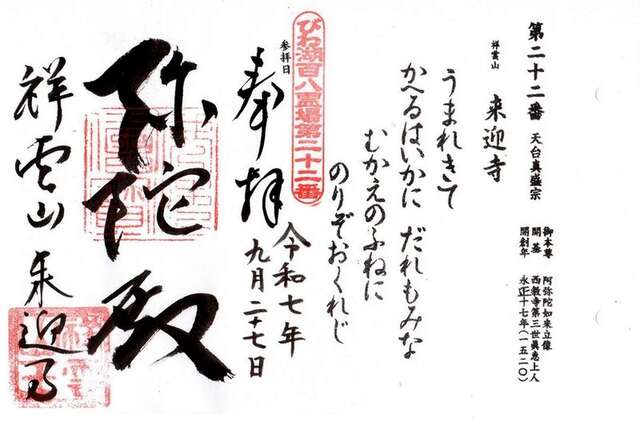 第二十二番 天台真盛宗
祥雲山 来迎寺
御本尊 阿弥陀如来立像
開基 西教寺第三世真恵上人
開創年 永正十七年(一五二〇)
うまれきて
かへるはいかに だれもみな
むかえのふねに
のりぞおくれじ
びわ湖百八霊場第二十二番
参拝日
奉拝
令和七年
九月二十七日
弥陀殿
祥雲山 来迎寺